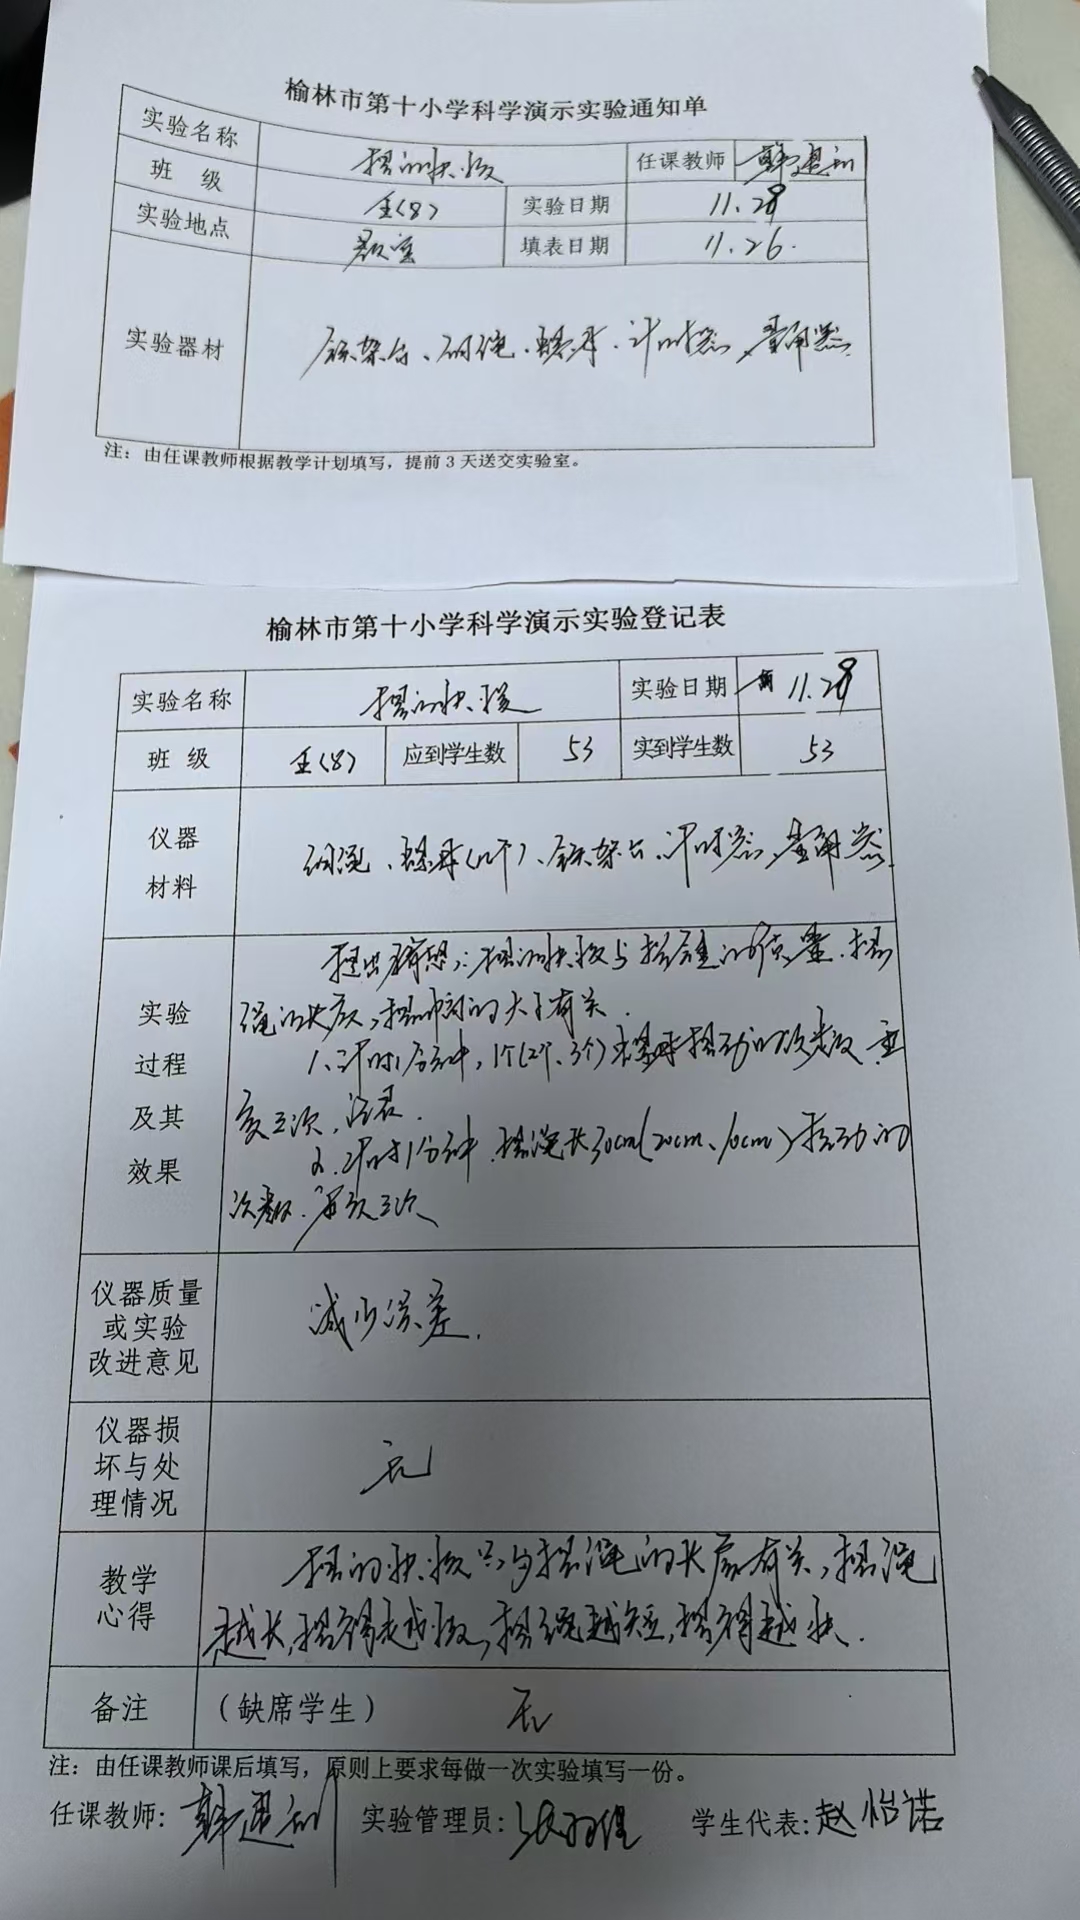 榆林市第十小学科学演示实验通知单
实验名称 摆的快慢 任课教师
班 级 五(8) 实验日期 11.28
实验地点 教室 填表日期 11.26.
实验器材 铁架台、细绳、螺母、计时器、量角器.
注：由任课教师根据教学计划填写，提前3天送交实验室。
榆林市第十小学科学演示实验登记表
实验名称 摆的快慢 实验日期 11.28
班 级 五(8) 应到学生数 53 实到学生数 53
仪器
材料
细绳、螺母(几个)、铁架台、计时器、量角器.
实验
过程
及其
效果
提出猜想：摆的快慢与摆锤的质量、摆
绳的长度，摆幅的大小有关.
1.计时1分钟，1个(2个、3个)螺母摆动的次数 重
复三次，记录.
2.计时1分钟 摆绳长30cm(20cm、10cm)摆动的
次数.重复三次
仪器质量
或实验
改进意见
减少误差.
仪器损
坏与处
理情况
无
教学
心得
摆的快慢只与摆绳的长度有关，摆绳
越长，摆得越慢，摆绳越短，摆得越快.
备注 (缺席学生) 无
注：由任课教师课后填写，原则上要求每做一次实验填写一份。
任课教师: 实验管理员: 学生代表:赵怡诺